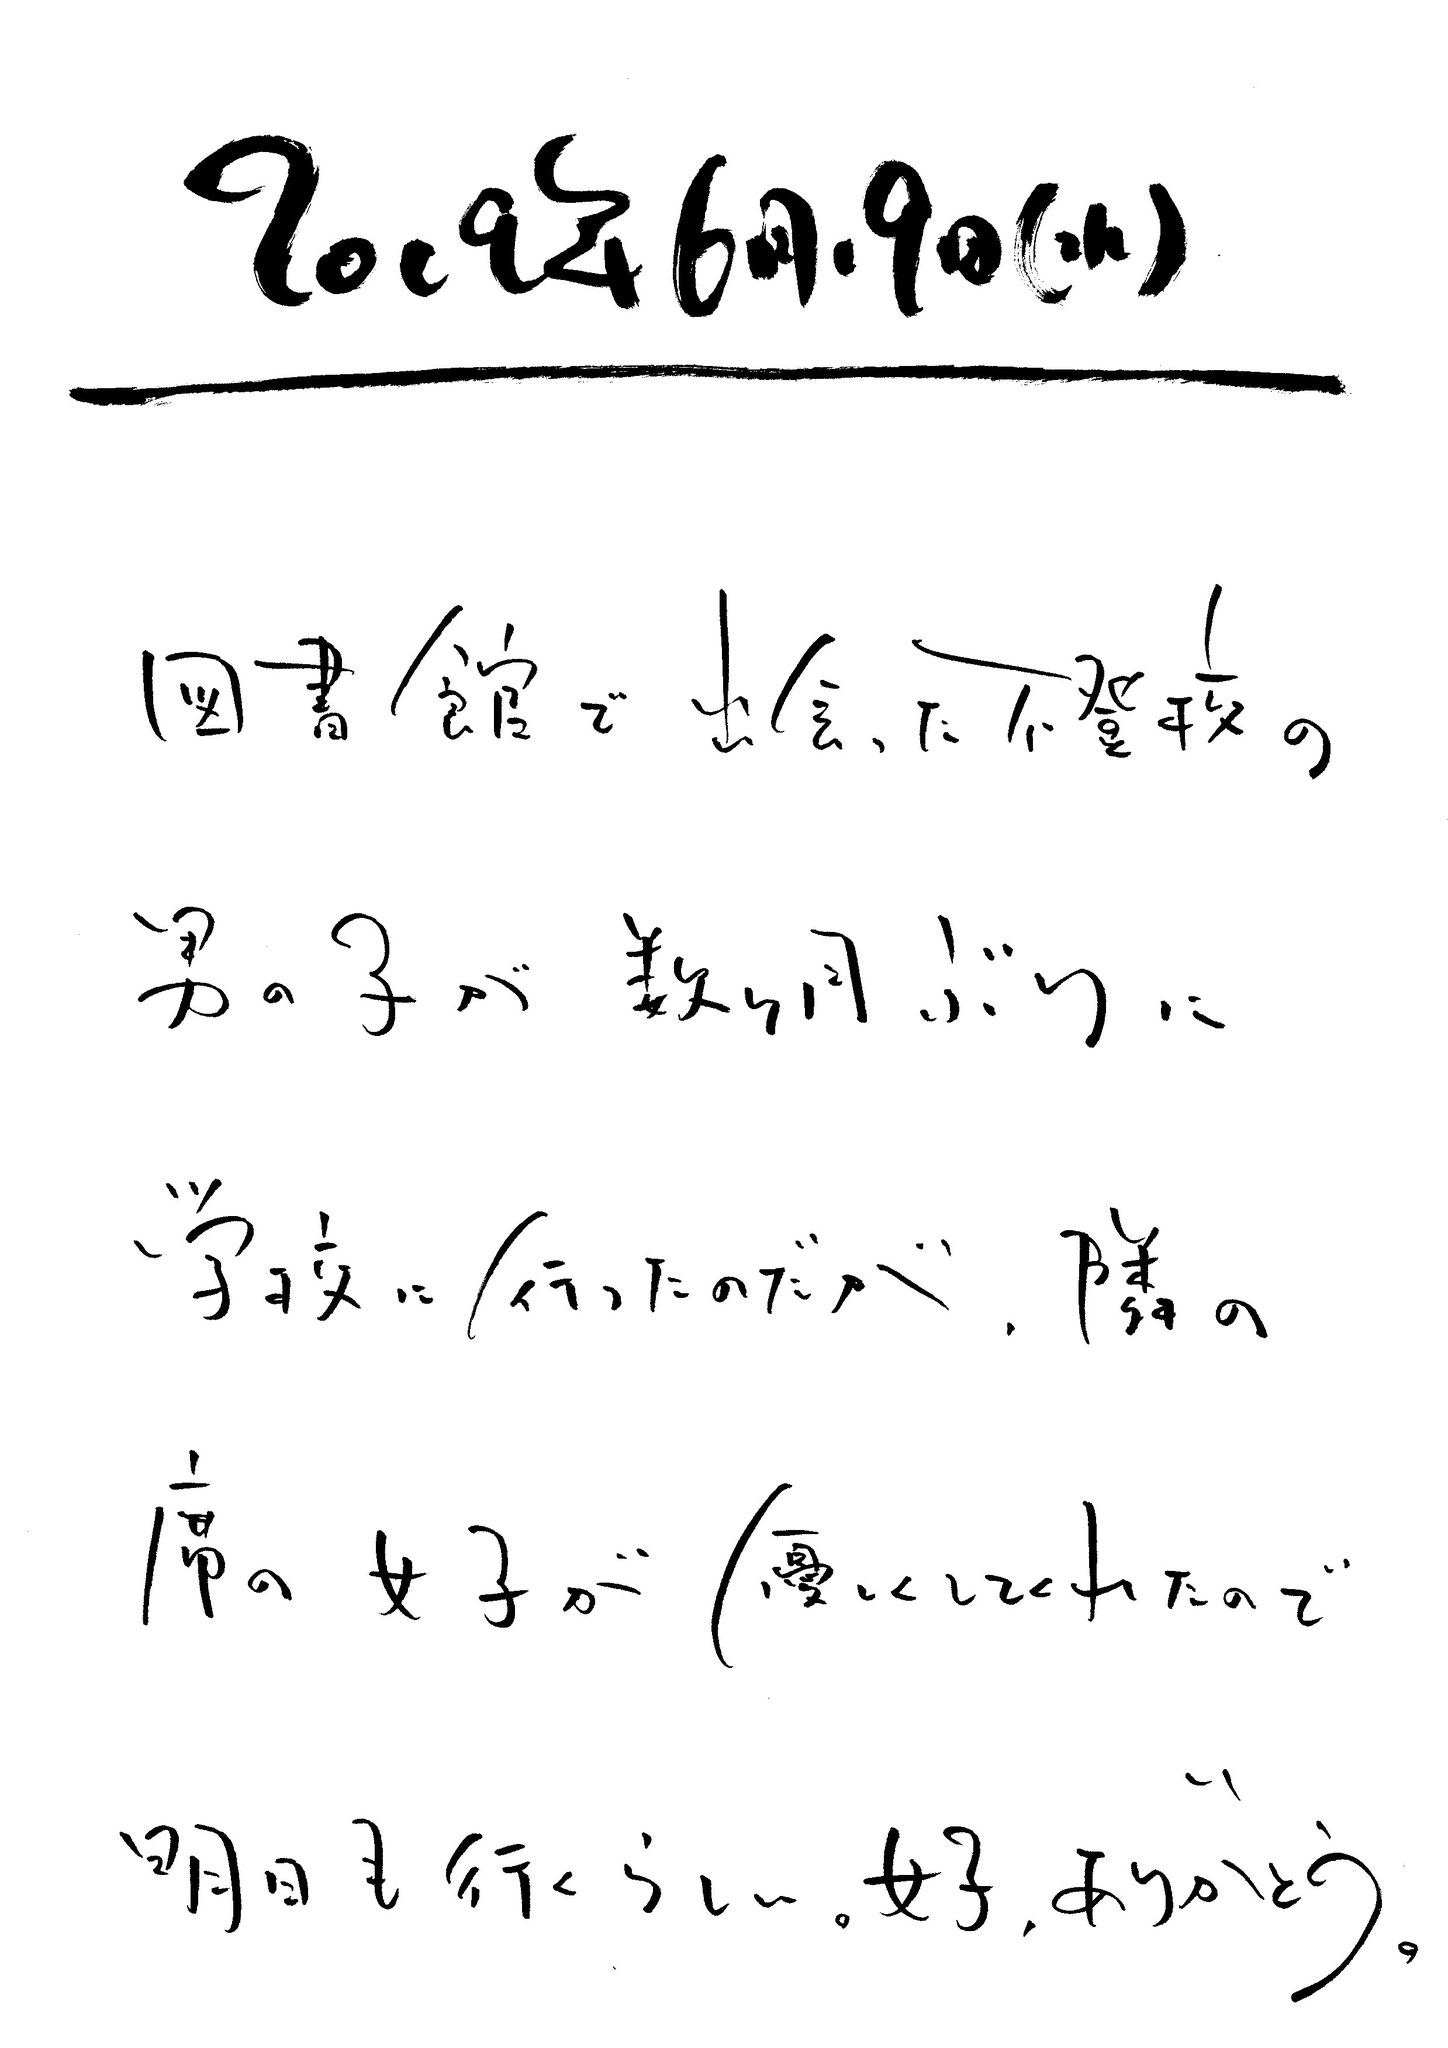 2019年6月19日(水)
図書館で出会った不登校の
男の子が数ヶ月ぶりに
学校に行ったのだが、隣の
席の女子が優しくしてくれたので
明日も行くらしい。女子、ありがとう。